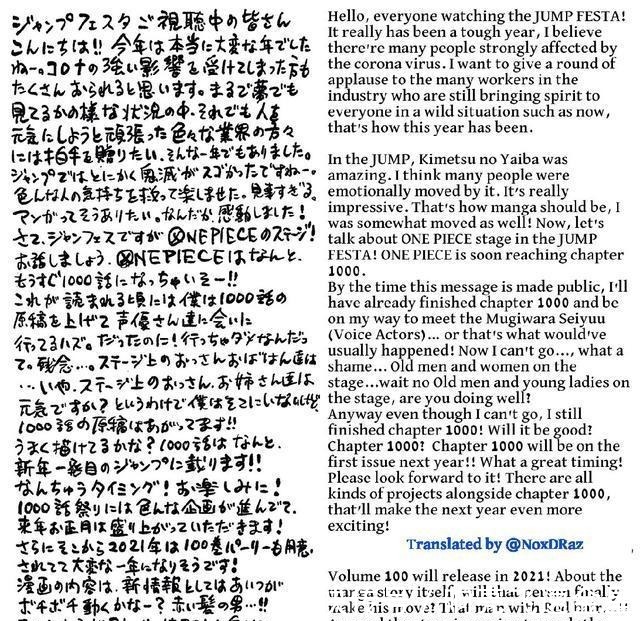 ジャンプフェスタご視聴中の皆さん
こんにちは!! 今年は本当に大変な年でした
ねー。コロナの強い影響を受けてしまった方も
たくさんおられると思います。まるで夢でも
見てるかの様な状況の中、それでも人を
元気にしようと頑張った色々な業界の方々
には拍手を贈りたい。そんな一年でもありました。
ジャンプではとにかく鬼滅がスゴかったですねー。
色んな人の気持ちを救って楽しませた。見事すぎる。
マンガってそうありたい。なんだか感動しました!
さて、ジャンフェスですが ONE PIECEのステージ!
お話しましょう。ONE PIECEはなんと、
もうすぐ1000話になっちゃいそー!!
これが読まれる頃には僕は1000話の
原稿を上げて声優さん達に会いに
行ってるハズ。だったのに!行っちゃダメなんだっ
て。残念…。ステージ上のおっさんおばはん達は
…いや、ステージ上のおっさん、お姉さん達は
元気ですか?というわけで僕はそこにいないけど
1000話の原稿はあがってます!!
うまく描けてるかな?1000話はなんと、
新年一発目のジャンプに載ります!!
なんちゅうタイミング!お楽しみに!
1000話祭りには色んな企画が進んでて、
来年お正月は盛り上がっていただきます!
さらにそこから2021年は100巻パーリーも用意
されてて大変な一年になりそうです!
漫画の内容は、新情報としてはあいつが
ボチボチ動くかなー?赤い髪の男…!!
Hello, everyone watching the JUMP FESTA!
It really has been a tough year, I believe
there're many people strongly affected by
the corona virus. I want to give a round of
applause to the many workers in the
industry who are still bringing spirit to
everyone in a wild situation such as now,
that's how this year has been.
In the JUMP, Kimetsu no Yaiba was
amazing. I think many people were
emotionally moved by it. It's really
impressive. That's how manga should be, I
was somewhat moved as well! Now, let's
talk about ONE PIECE stage in the JUMP
FESTA! ONE PIECE is soon reaching chapter
1000.
By the time this message is made public, I'll
have already finished chapter 1000 and be
on my way to meet the Mugiwara Seiyuu
(Voice Actors)... or that's what would've
usually happened! Now I can't go..., what a
shame... Old men and women on the
stage...wait no Old men and young ladies on
the stage, are you doing well?
Anyway even though I can't go, I still
finished chapter 1000! Will it be good?
Chapter 1000? Chapter 1000 will be on the
first issue next year!! What a great timing!
Please look forward to it! There are all
kinds of projects alongside chapter 1000,
that'll make the next year even more
exciting!
Translated by @NoxDRaz
Volume 100 will release in 2021! About the
manga story itself, will that person finally
make his move? That man with Red hair...!!